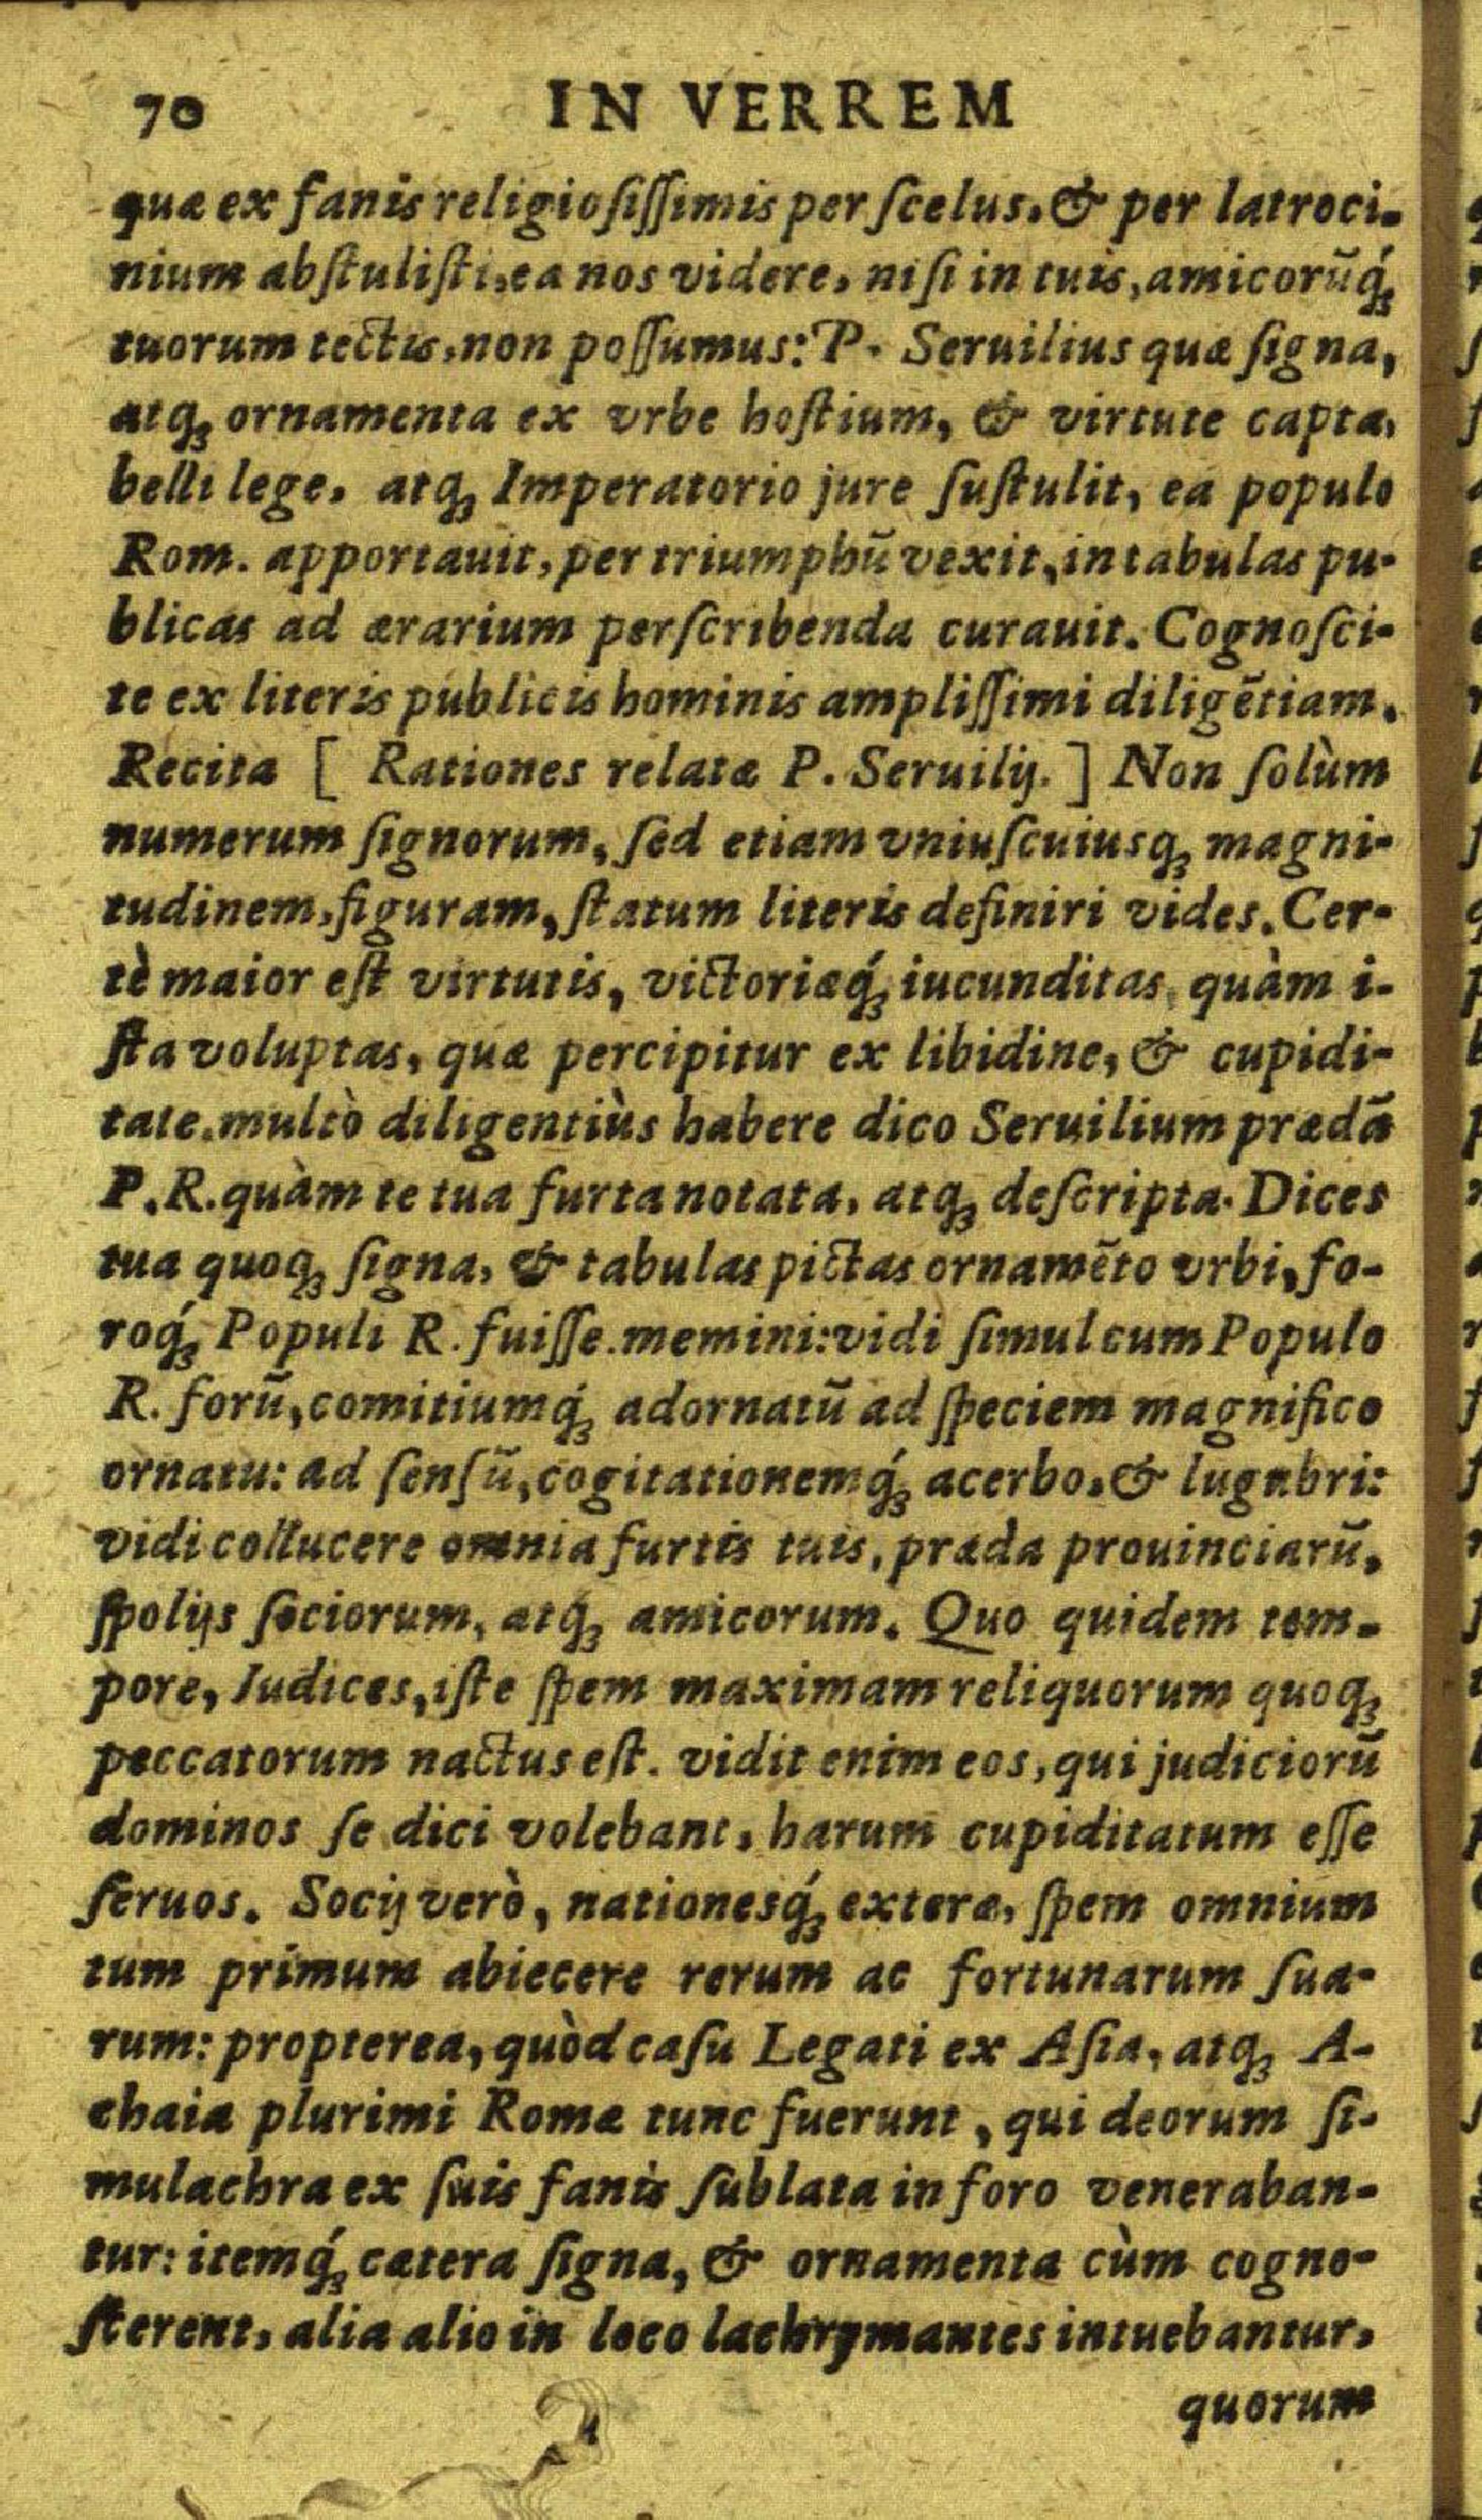 70 IN VERREM
quæ ex fanis religiosiſſimis per ſcelus, & per latroci-
nium abſtuliſti, ea nos videre, niſi in tuis, amicorũq́;
tuorum tectis, non poſſumus: P. Seruilius quæ ſigna,
atq; ornamenta ex vrbe hoſtium, & virtute capta,
belli lege, atq; Imperatorio jure ſuſtulit, ea populo
Rom. apportauit, per triumphũ vexit, in tabulas pu-
blicas ad ærarium perſcribenda curauit. Cognoſci-
te ex literis publicis hominis ampliſſimi diligẽtiam.
Recita [ Rationes relatæ P. Seruilij. ] Non ſolùm
numerum ſignorum, ſed etiam vniuſcuiusq; magni-
tudinem, figuram, ſtatum literis definiri vides. Cer-
tè maior eſt virtutis, victoriæq́; iucunditas, quàm i-
ſta voluptas, quæ percipitur ex libidine, & cupidi-
tate. multò diligentiùs habere dico Seruilium prædã
P. R. quàm te tua furta notata, atq; deſcripta. Dices
tua quoq; ſigna, & tabulas pictas ornamẽto vrbi, fo-
roq́; Populi R. fuiſſe. memini: vidi ſimul cum Populo
R. forũ, comitiumq́; adornatũ ad ſpeciem magnifico
ornatu: ad ſenſũ, cogitationemq́; acerbo, & lugubri:
vidi collucere omnia furtis tuis, præda prouinciarũ,
ſpolijs ſociorum, atq́; amicorum. Quo quidem tem-
pore, Iudices, iſte ſpem maximam reliquorum quoq;
peccatorum nactus eſt. vidit enim eos, qui judiciorũ
dominos ſe dici volebant, harum cupiditatum eſſe
ſeruos. Socij verò, nationesq́; exteræ, ſpem omnium
tum primum abiecere rerum ac fortunarum ſua-
rum: propterea, quòd caſu Legati ex Aſia, atq; A-
chaia plurimi Romæ tunc fuerunt, qui deorum ſi-
mulachra ex ſuis fanis ſublata in foro veneraban-
tur: itemq́; cætera ſigna, & ornamenta cùm cogno-
ſcerent, alia alio in loco lachrymantes intuebantur,
quorum